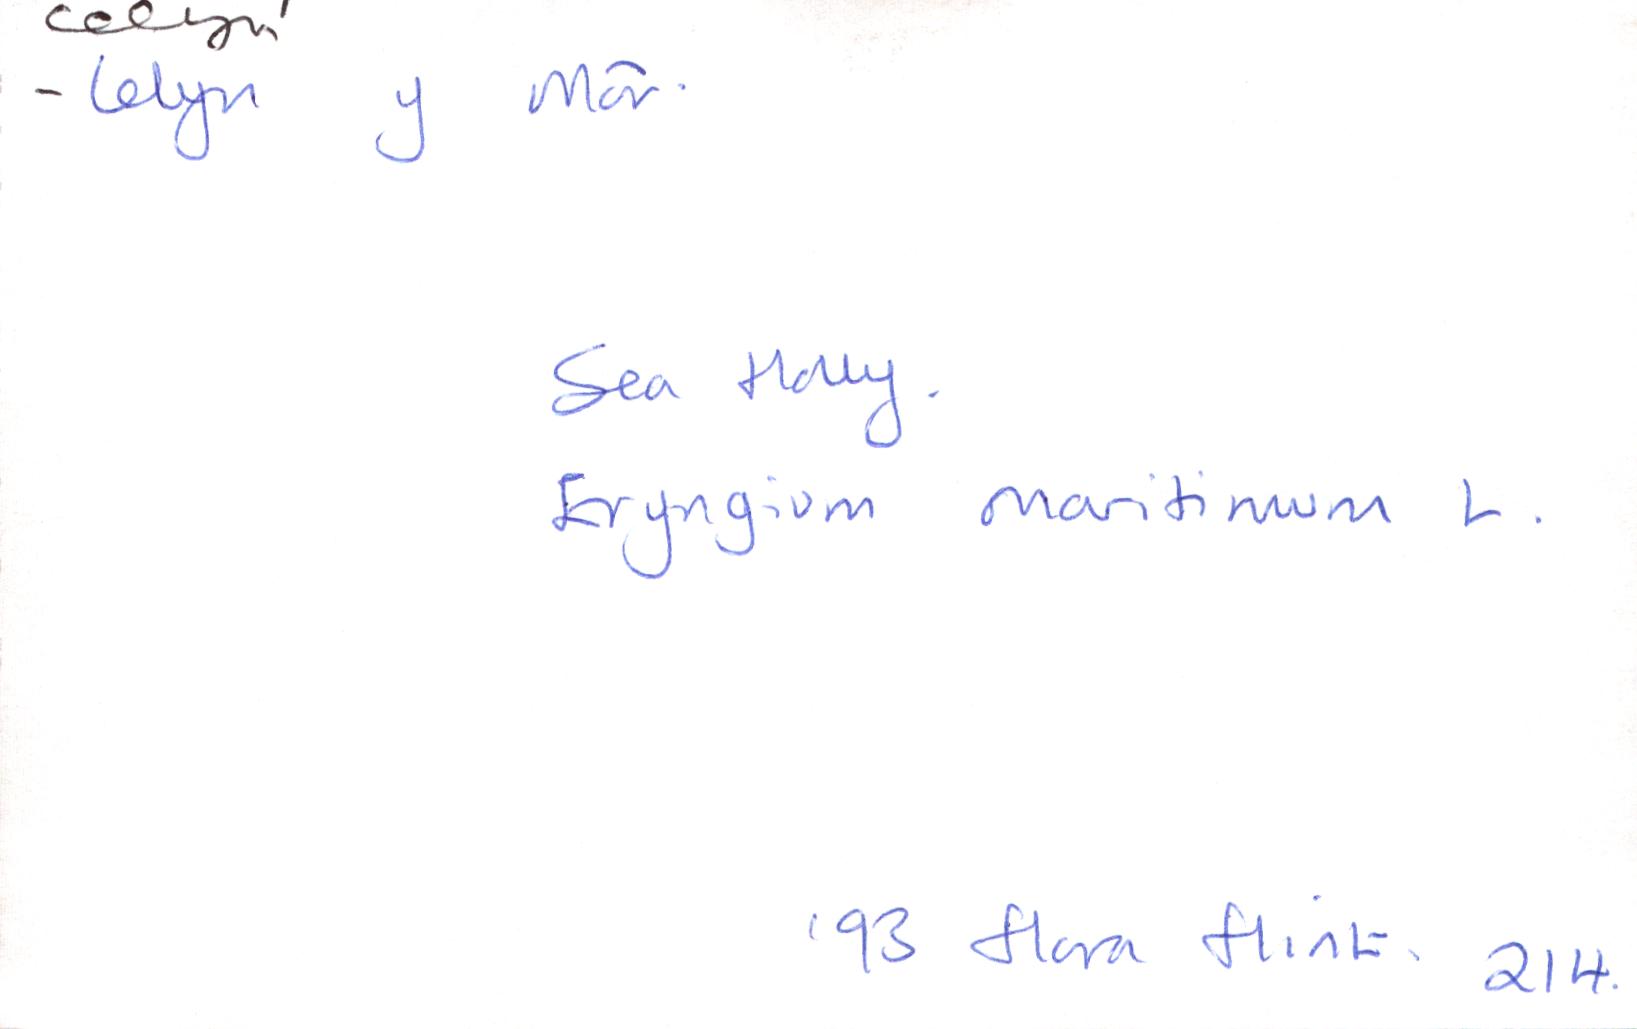 celyn¹
- Celyn y Môr.
Sea Holly.
Eryngium maritimum L.
'93 Flora Flint. 214.